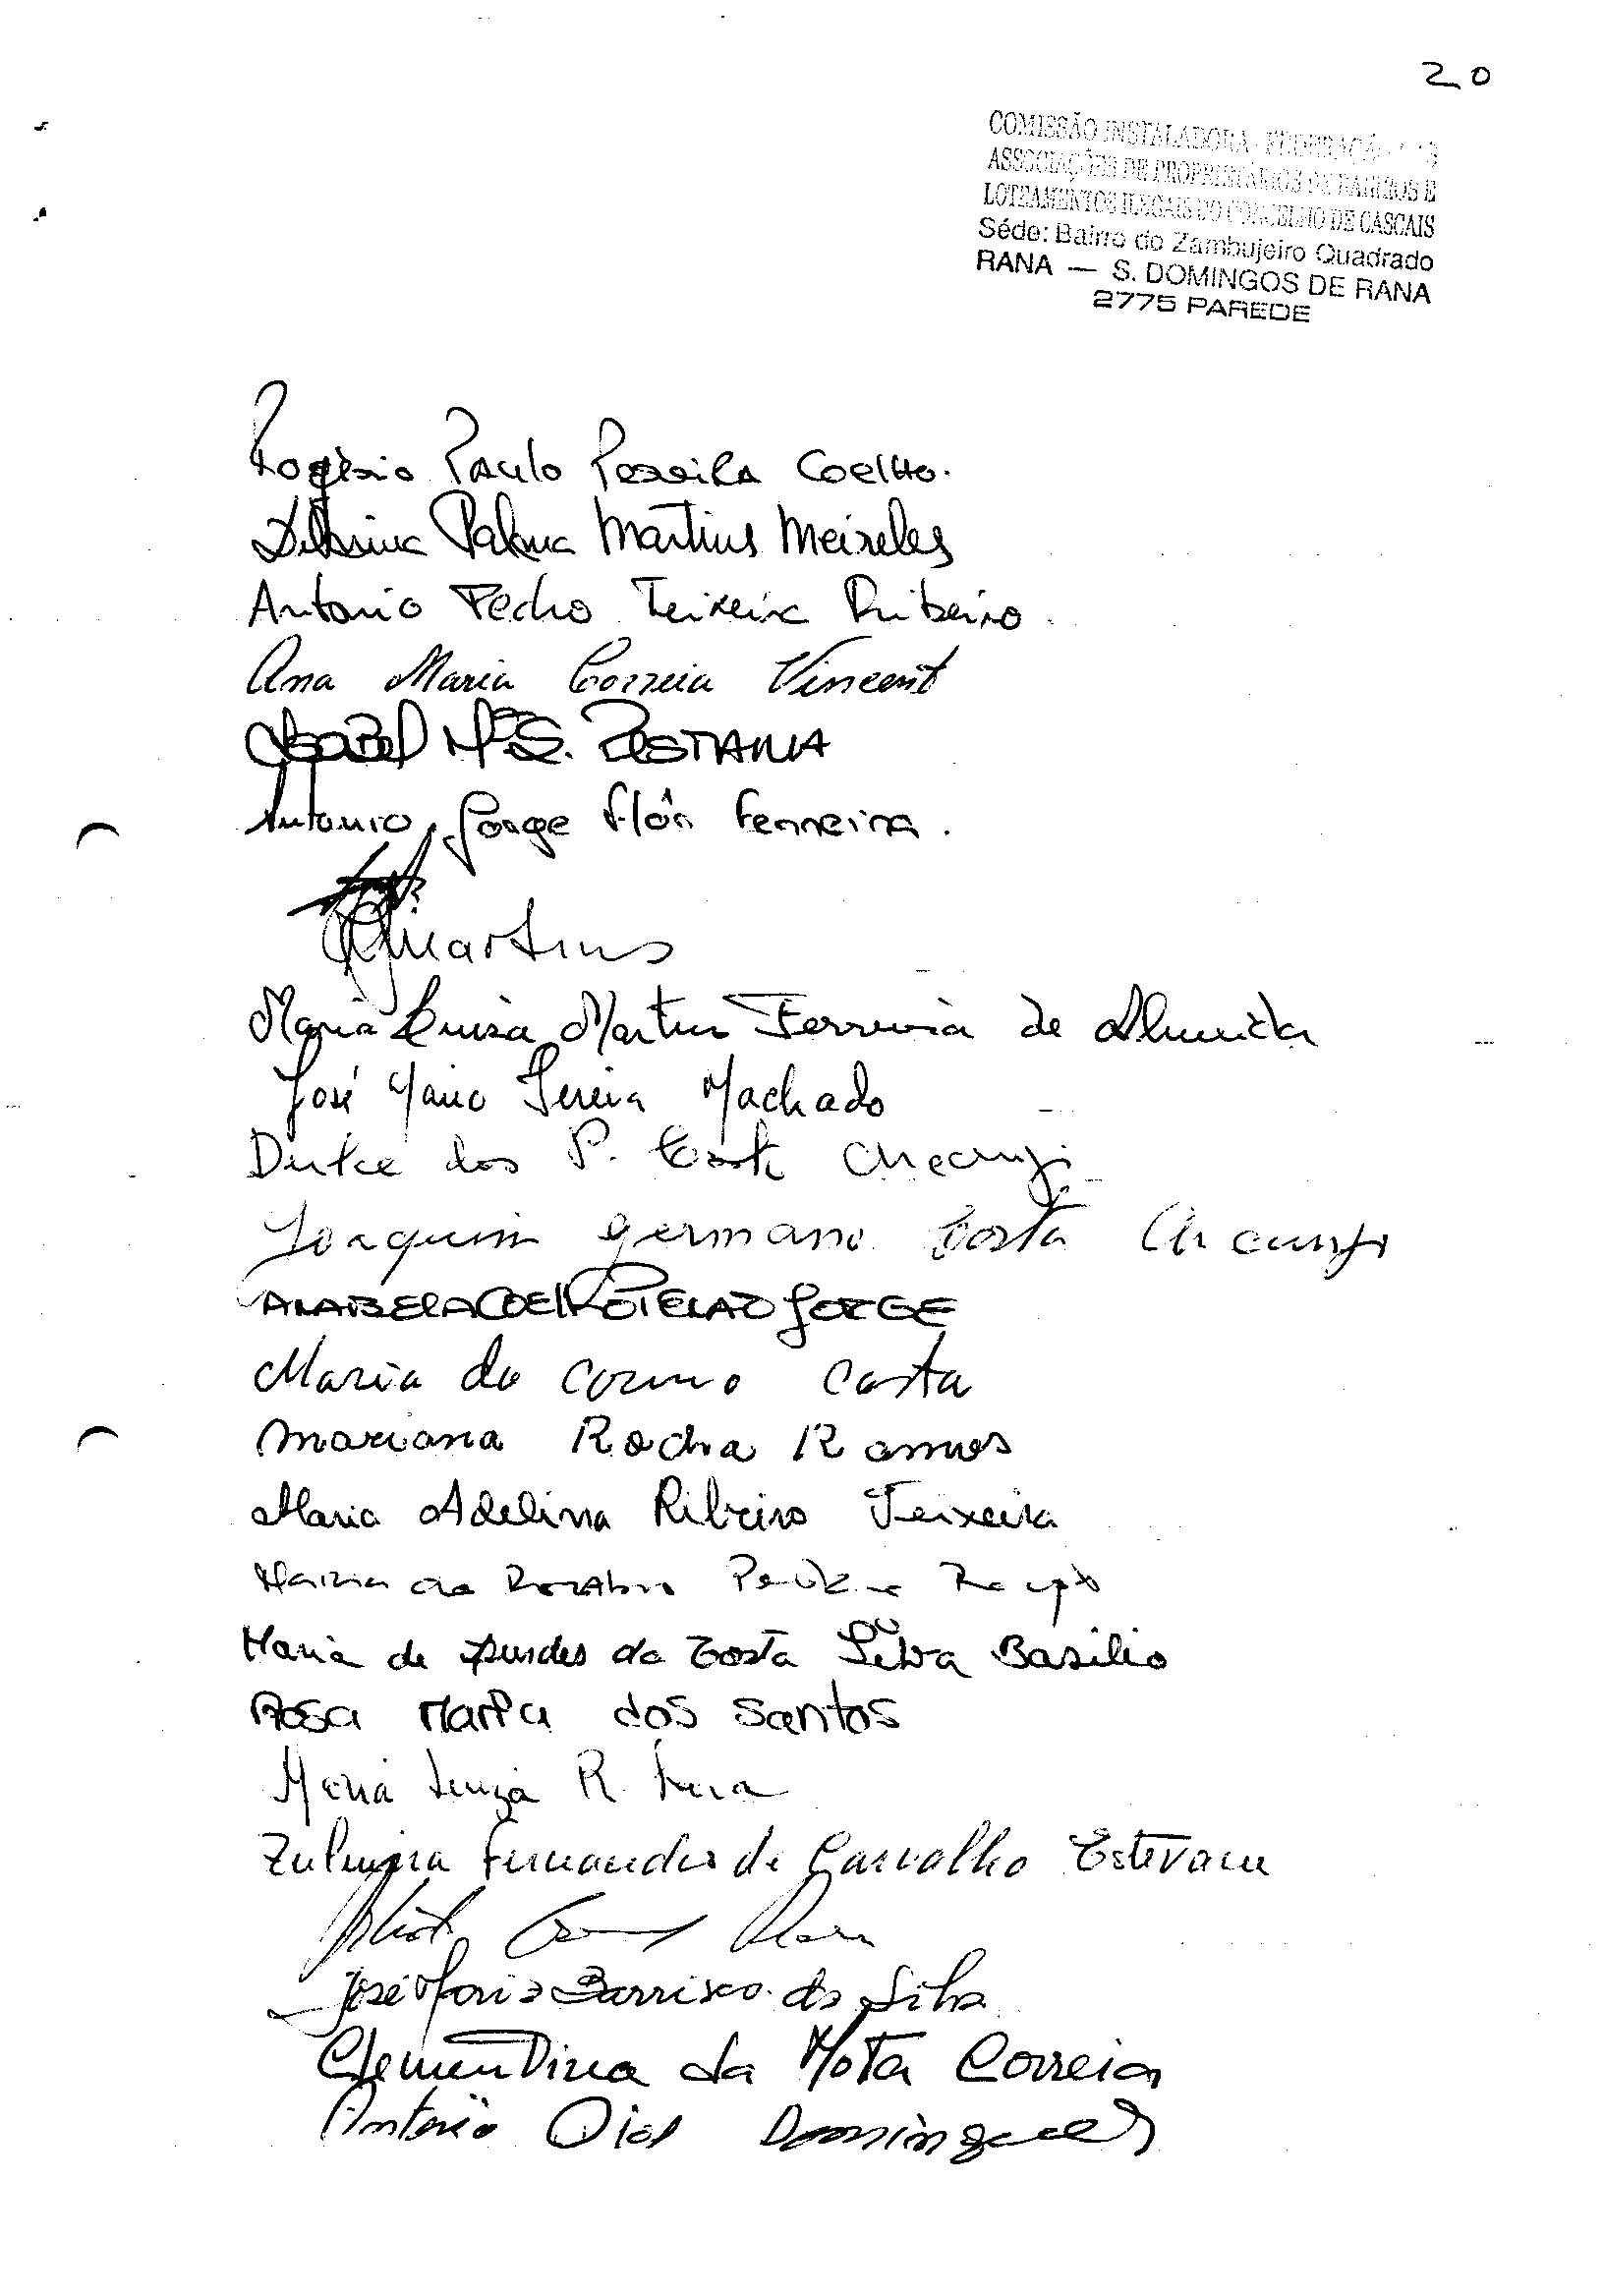 20
COMISSÃO INSTALADORA - FEDERAÇÃO
ASSOCIAÇÕES DE PROPRIETÁRIOS DE BAIRROS E
LOTEAMENTOS ILEGAIS DO CONCELHO DE CASCAIS
Séde: Bairro do Zambujeiro Quadrado
RANA — S. DOMINGOS DE RANA
2775 PAREDE
Rogério Paulo Pereira Coelho.
Palma Martins Meireles
Antonio Pedro Teixeira Ribeiro
Ana Maria Correia Vincent
ISABEL Mª S. PESTANA
Antonio Jorge Flôr Ferreira.
Martins
Maria Luisa Martins Ferreira de Almeida
José Mario Pereira Machado
Dulce dos P. Costa
Joaquim germano Costa
ANABELA COELHO PELADO JORGE
Maria do Carmo Costa
Mariana Rocha Ramos
Maria Adelina Ribeiro Teixeira
Maria do
Maria de Lurdes da Costa Silva Basilio
Rosa Maria dos Santos
Maria Luiza R.
Zulmira Fernandes de Carvalho Estevam
José Maria Barrisco da Silva
Clementina da Mota Correia
António Dias Domingues